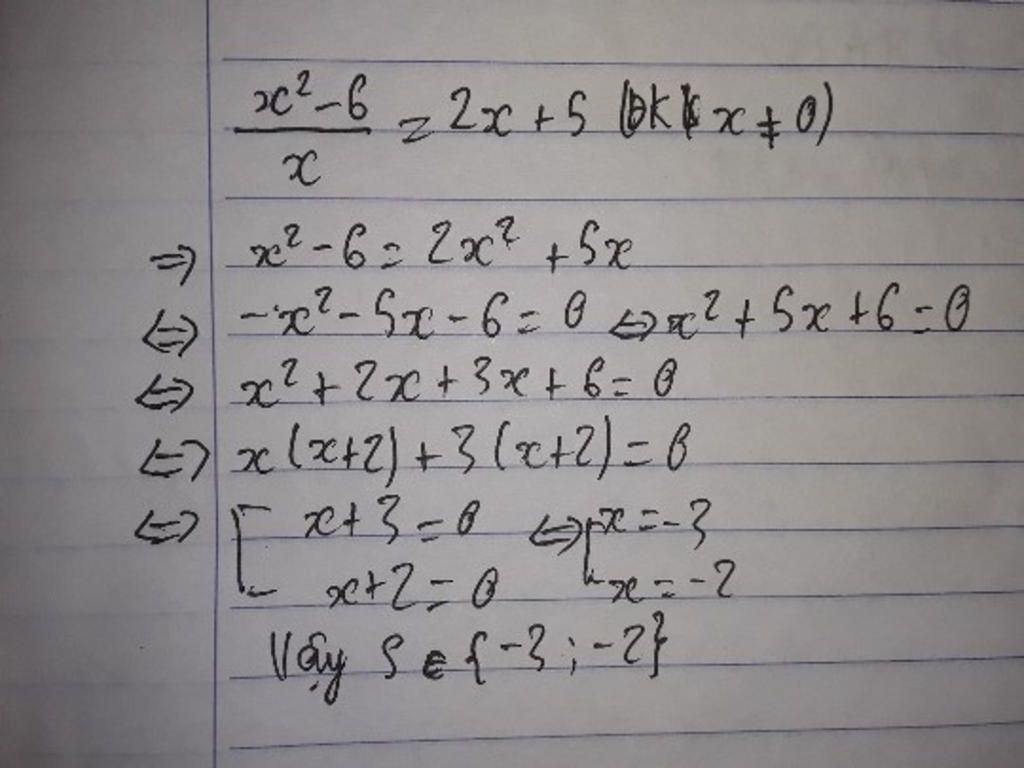 x² - 6 / x = 2x + 5 (ĐK x ≠ 0)
⇒ x² - 6 = 2x² + 5x
⇔ -x² - 5x - 6 = 0 ⇔ x² + 5x + 6 = 0
⇔ x² + 2x + 3x + 6 = 0
⇔ x(x+2) + 3(x+2) = 0
⇔ [ x + 3 = 0 ⇔ [ x = -3
x + 2 = 0 x = -2
Vậy S ∈ {-3; -2}